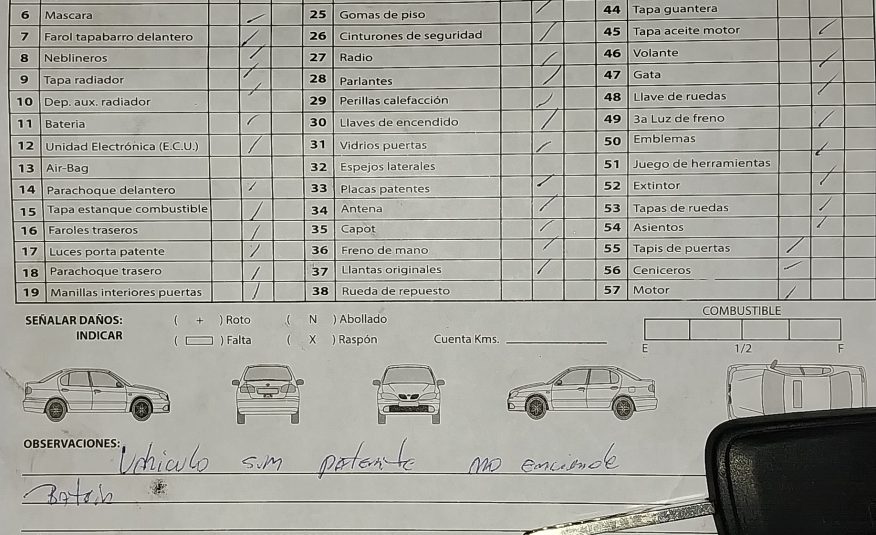 6 Mascara 25 Gomas de piso 44 Tapa guantera
7 Farol tapabarro delantero 26 Cinturones de seguridad 45 Tapa aceite motor
8 Neblineros 27 Radio 46 Volante
9 Tapa radiador 28 Parlantes 47 Gata
10 Dep. aux. radiador 29 Perillas calefacción 48 Llave de ruedas
11 Bateria 30 Llaves de encendido 49 3a Luz de freno
12 Unidad Electrónica (E.C.U.) 31 Vidrios puertas 50 Emblemas
13 Air-Bag 32 Espejos laterales 51 Juego de herramientas
14 Parachoque delantero 33 Placas patentes 52 Extintor
15 Tapa estanque combustible 34 Antena 53 Tapas de ruedas
16 Faroles traseros 35 Capot 54 Asientos
17 Luces porta patente 36 Freno de mano 55 Tapis de puertas
18 Parachoque trasero 37 Llantas originales 56 Ceniceros
19 Manillas interiores puertas 38 Rueda de repuesto 57 Motor
SEÑALAR DAÑOS: ( + ) Roto ( N ) Abollado COMBUSTIBLE
INDICAR ( ) Falta ( X ) Raspón Cuenta Kms.
E 1/2 F
OBSERVACIONES: Vehiculo sin patente no enciende